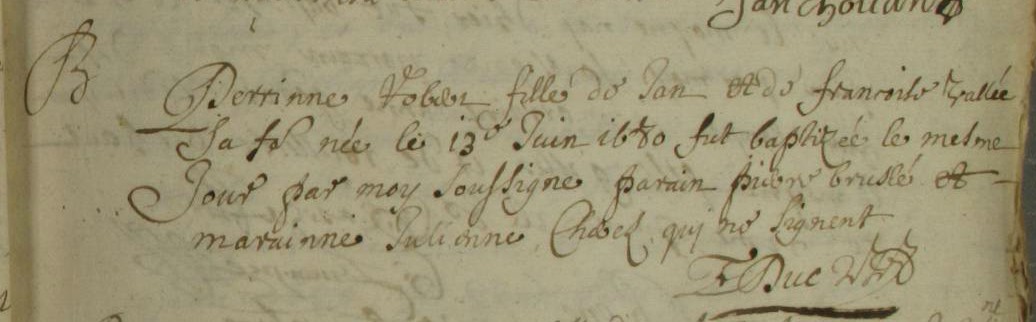 Jan Chollan
B
Perrinne Robert fille de Jan et de francoise vallée
Sa fe née le 13e Juin 1680 fut baptizée le mesme
Jour par moy soussigne parain pierre bruslé et
marainne Julienne qui ne signent
Duc